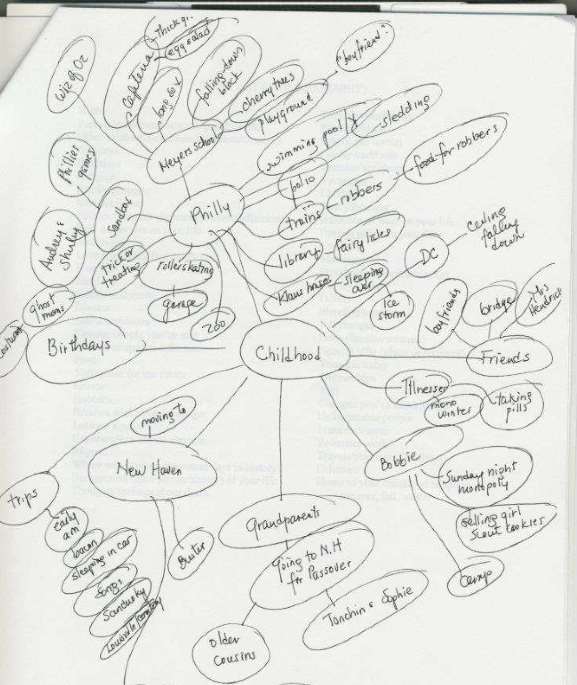 Wiz of Oz
Cafeteria
thick gr
egg salad
long
falling-down
black
cherry trees
playground
"boyfriend"
Meyers school
swimming pool
sledding
Phillies
games
Sandbox
Philly
polio
trains
robbers
food for robbers
Audrey &
Shirley
trick or
treating
roller skating
library
fairy tales
DC
Ceiling
falling
down
ghost
moms
garage
Klaus house
sleeping
over
ice
storm
zoo
boyfriends
bridge
Mrs
Hendrick
Birthdays
Childhood
Friends
Illnesses
mono
winter
taking
pills
moving to
New Haven
Bobbie
Sunday night
monopoly
trips
early
am
bacon
sleeping in car
songs
Sandusky
Louisville
Grandparents
selling girl
scout cookies
Going to N.H
for Passover
camp
older
cousins
Sophie